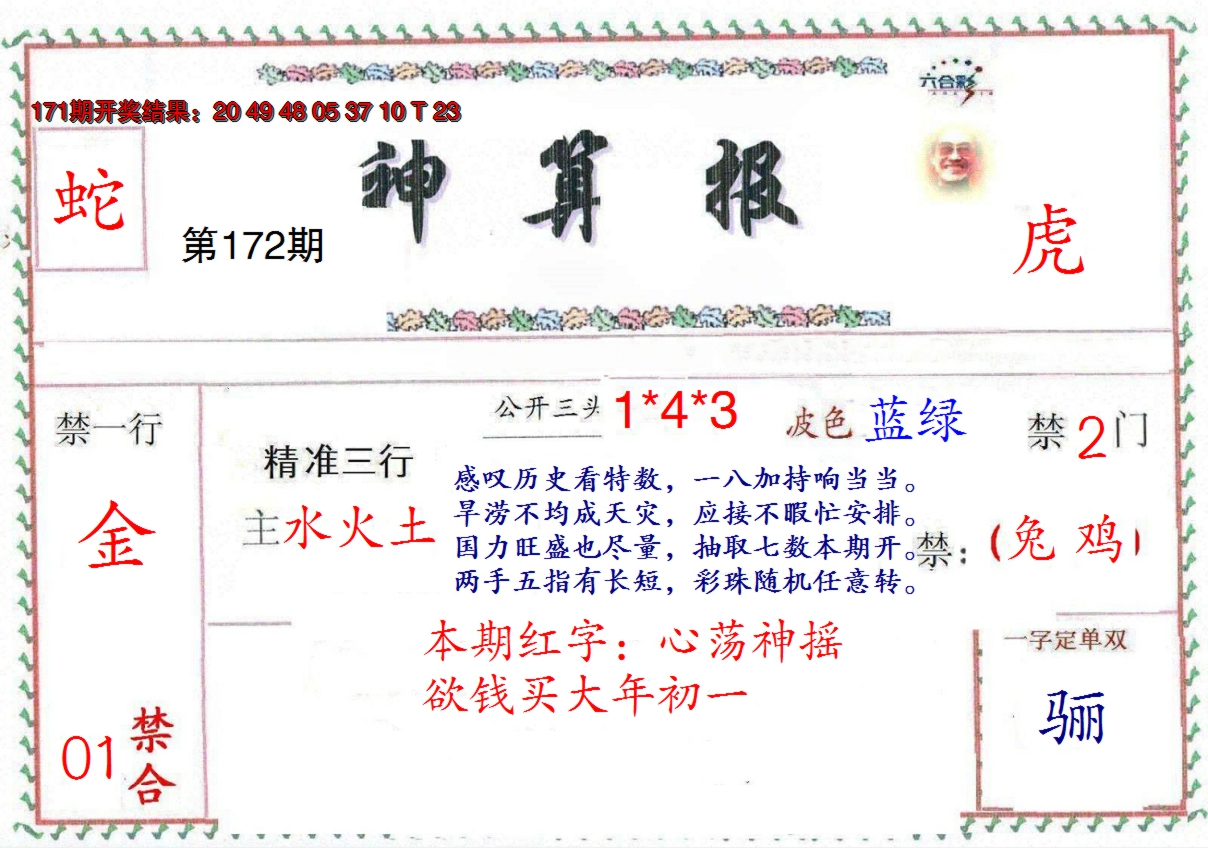 六合彩
171期开奖结果：20 49 48 05 37 10 T 23
蛇
神算报
第172期
虎
禁一行
金
01
禁合
精准三行
主水火土
公开三头 1*4*3
波色 蓝绿
禁2门
感叹历史看特数，一八加持响当当。
旱涝不均成天灾，应接不暇忙安排。
国力旺盛也尽量，抽取七数本期开。
两手五指有长短，彩珠随机任意转。
禁：（兔 鸡）
本期红字：心荡神摇
欲钱买大年初一
一字定单双
骊